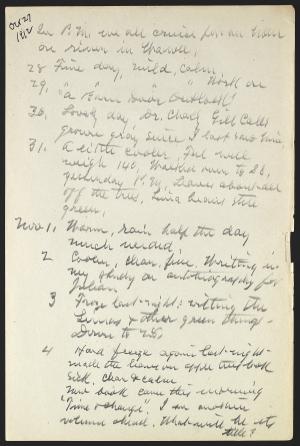 Oct 27
1912
In P.M. we all cruise for an hour
on river in Shawll.
28 Fine day, mild, calm.
29, " " " " Work on
"a Barn Door Outlook"
30, Lovely day, Dr. Chas. Gill calls
grown gray since I last saw him.
31, A little cooler, Feel well
weigh 140,
yesterday P.M. Leaves about all
off the trees, save leaves still
green,
Nov 1, Warm, rain half the day
much needed,
2 Cooler, clear, fine. Writing in
my study on autobiography for
Julian
3 Froze last-night; wilting the
Limas & other green things
Down to 28,
4 Hard freeze again last-night-
made the leaves on apple trees look
sick, clear & calm
New book came this morning
"Time & change". I am another
volume ahead. What will be its
title?